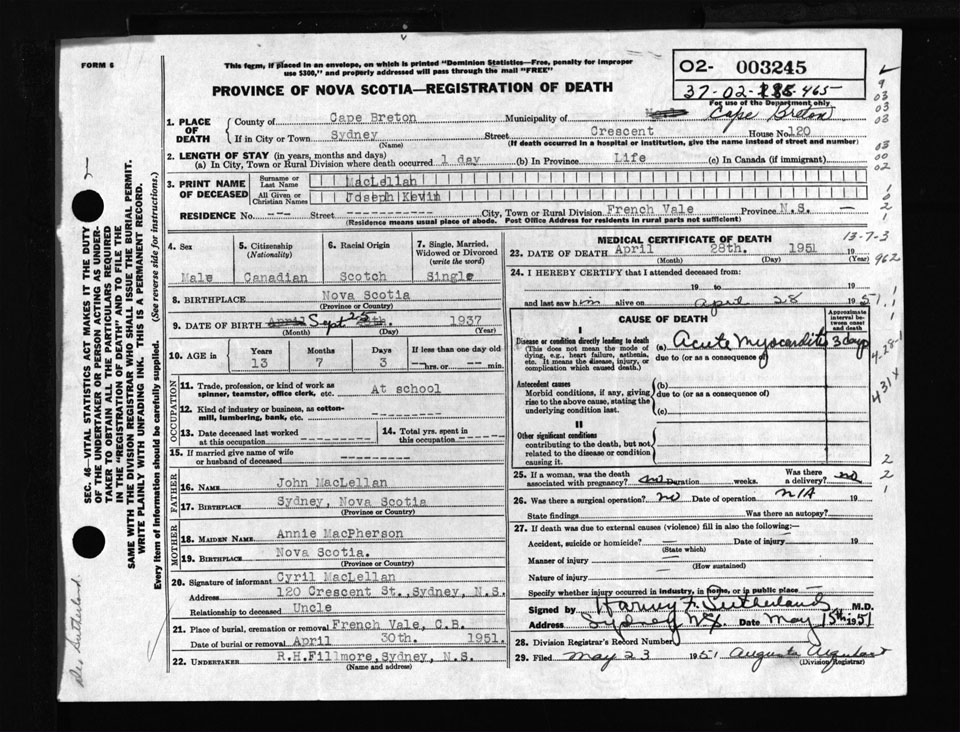 FORM 6
This form, if placed in an envelope, on which is printed "Dominion Statistics—Free, penalty for improper
use $300," and properly addressed will pass through the mail "FREE"
PROVINCE OF NOVA SCOTIA—REGISTRATION OF DEATH
02- 003245
37-02- 465
For use of the Department only
1. PLACE OF DEATH
County of Cape Breton Municipality of Cape Breton
If in City or Town Sydney Street Crescent House No. 120
(Name) (If death occurred in a hospital or institution, give the name instead of street and number)
2. LENGTH OF STAY (in years, months and days)
(a) In City, Town or Rural Division where death occurred 1 day (b) In Province Life (c) In Canada (if immigrant)
3. PRINT NAME OF DECEASED
Surname or Last Name MacLellan
All Given or Christian Names Joseph Kevin
RESIDENCE No. --- Street ----------- City, Town or Rural Division French Vale Province N.S. —
(Residence means usual place of abode. Post Office Address for residents in rural parts not sufficient)
4. Sex Male
5. Citizenship (Nationality) Canadian
6. Racial Origin Scotch
7. Single, Married, Widowed or Divorced (write the word) Single
8. BIRTHPLACE Nova Scotia
(Province or Country)
9. DATE OF BIRTH April Sept 25 1937
(Month) (Day) (Year)
10. AGE in Years 13 Months 7 Days 3 If less than one day old --hrs. or --min.
OCCUPATION
11. Trade, profession, or kind of work as spinner, teamster, office clerk, etc. At school
12. Kind of industry or business, as cotton-mill, lumbering, bank, etc. --------
13. Date deceased last worked at this occupation --------
14. Total yrs. spent in this occupation --------
15. If married give name of wife or husband of deceased --------
FATHER
16. NAME John MacLellan
17. BIRTHPLACE Sydney, Nova Scotia
(Province or Country)
MOTHER
18. MAIDEN NAME Annie MacPherson
19. BIRTHPLACE Nova Scotia.
(Province or Country)
20. Signature of informant Cyril MacLellan
Address 120 Crescent St., Sydney, N.S.
Relationship to deceased Uncle
21. Place of burial, cremation or removal French Vale, C.B.
Date of burial or removal April 30th. 1951.
22. UNDERTAKER R.H.Fillmore, Sydney, N.S.
(Name and address)
MEDICAL CERTIFICATE OF DEATH
13-7-3
23. DATE OF DEATH April 28th. 1951 19
(Month) (Day) (Year)
962
24. I HEREBY CERTIFY that I attended deceased from:
19 to 19
and last saw him alive on April 28 1951
CAUSE OF DEATH
Approximate interval between onset and death
I
Disease or condition directly leading to death
(This does not mean the mode of dying, e.g., heart failure, asthenia, etc. It means the disease, injury, or complication which caused death.)
(a) Acute Myocarditis 3 days
due to (or as a consequence of)
Antecedent causes
Morbid conditions, if any, giving rise to the above cause, stating the underlying condition last.
(b)
due to (or as a consequence of)
(c)
II
Other significant conditions
contributing to the death, but not related to the disease or condition causing it.
4-28-1
431x
25. If a woman, was the death associated with pregnancy? no Duration weeks. Was there a delivery? no
26. Was there a surgical operation? no Date of operation N/A 19
State findings Was there an autopsy?
27. If death was due to external causes (violence) fill in also the following:—
Accident, suicide or homicide? — Date of injury — 19
(State which)
Manner of injury —
(How sustained)
Nature of injury —
Specify whether injury occurred in industry, in home, or in public place
Signed by Harvey F. Sutherland M.D.
Address Sydney N.S. Date May 15th 1951
28. Division Registrar's Record Number
29. Filed May 23 1951 Augusta
(Division Registrar)
SEC. 46—VITAL STATISTICS ACT MAKES IT THE DUTY
OF THE UNDERTAKER OR PERSON ACTING AS UNDER-
TAKER TO OBTAIN ALL THE PARTICULARS REQUIRED
IN THE "REGISTRATION OF DEATH" AND TO FILE THE
SAME WITH THE DIVISION REGISTRAR WHO SHALL ISSUE THE BURIAL PERMIT.
WRITE PLAINLY WITH UNFADING INK. THIS IS A PERMANENT RECORD.
Every item of information should be carefully supplied. (See reverse side for instructions.)
Sutherland